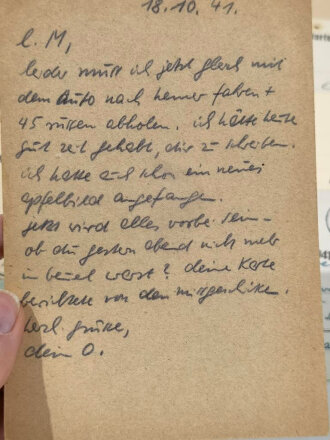 18.10.41.
l. M,
leider muss ich jetzt gleich mit
dem Auto nach hemer fahren +
45 russen abholen. ich hätte heute
gut zeit gehabt, dir zu schreiben.
ich hatte auch schon ein neues
apfelbild angefangen.
jetzt wird alles vorbei sein –
ob du gestern abend nicht mehr
in beuel warst? deine Karte
berichtete von dem missgeschick.
herzl. grüsse,
dein O.